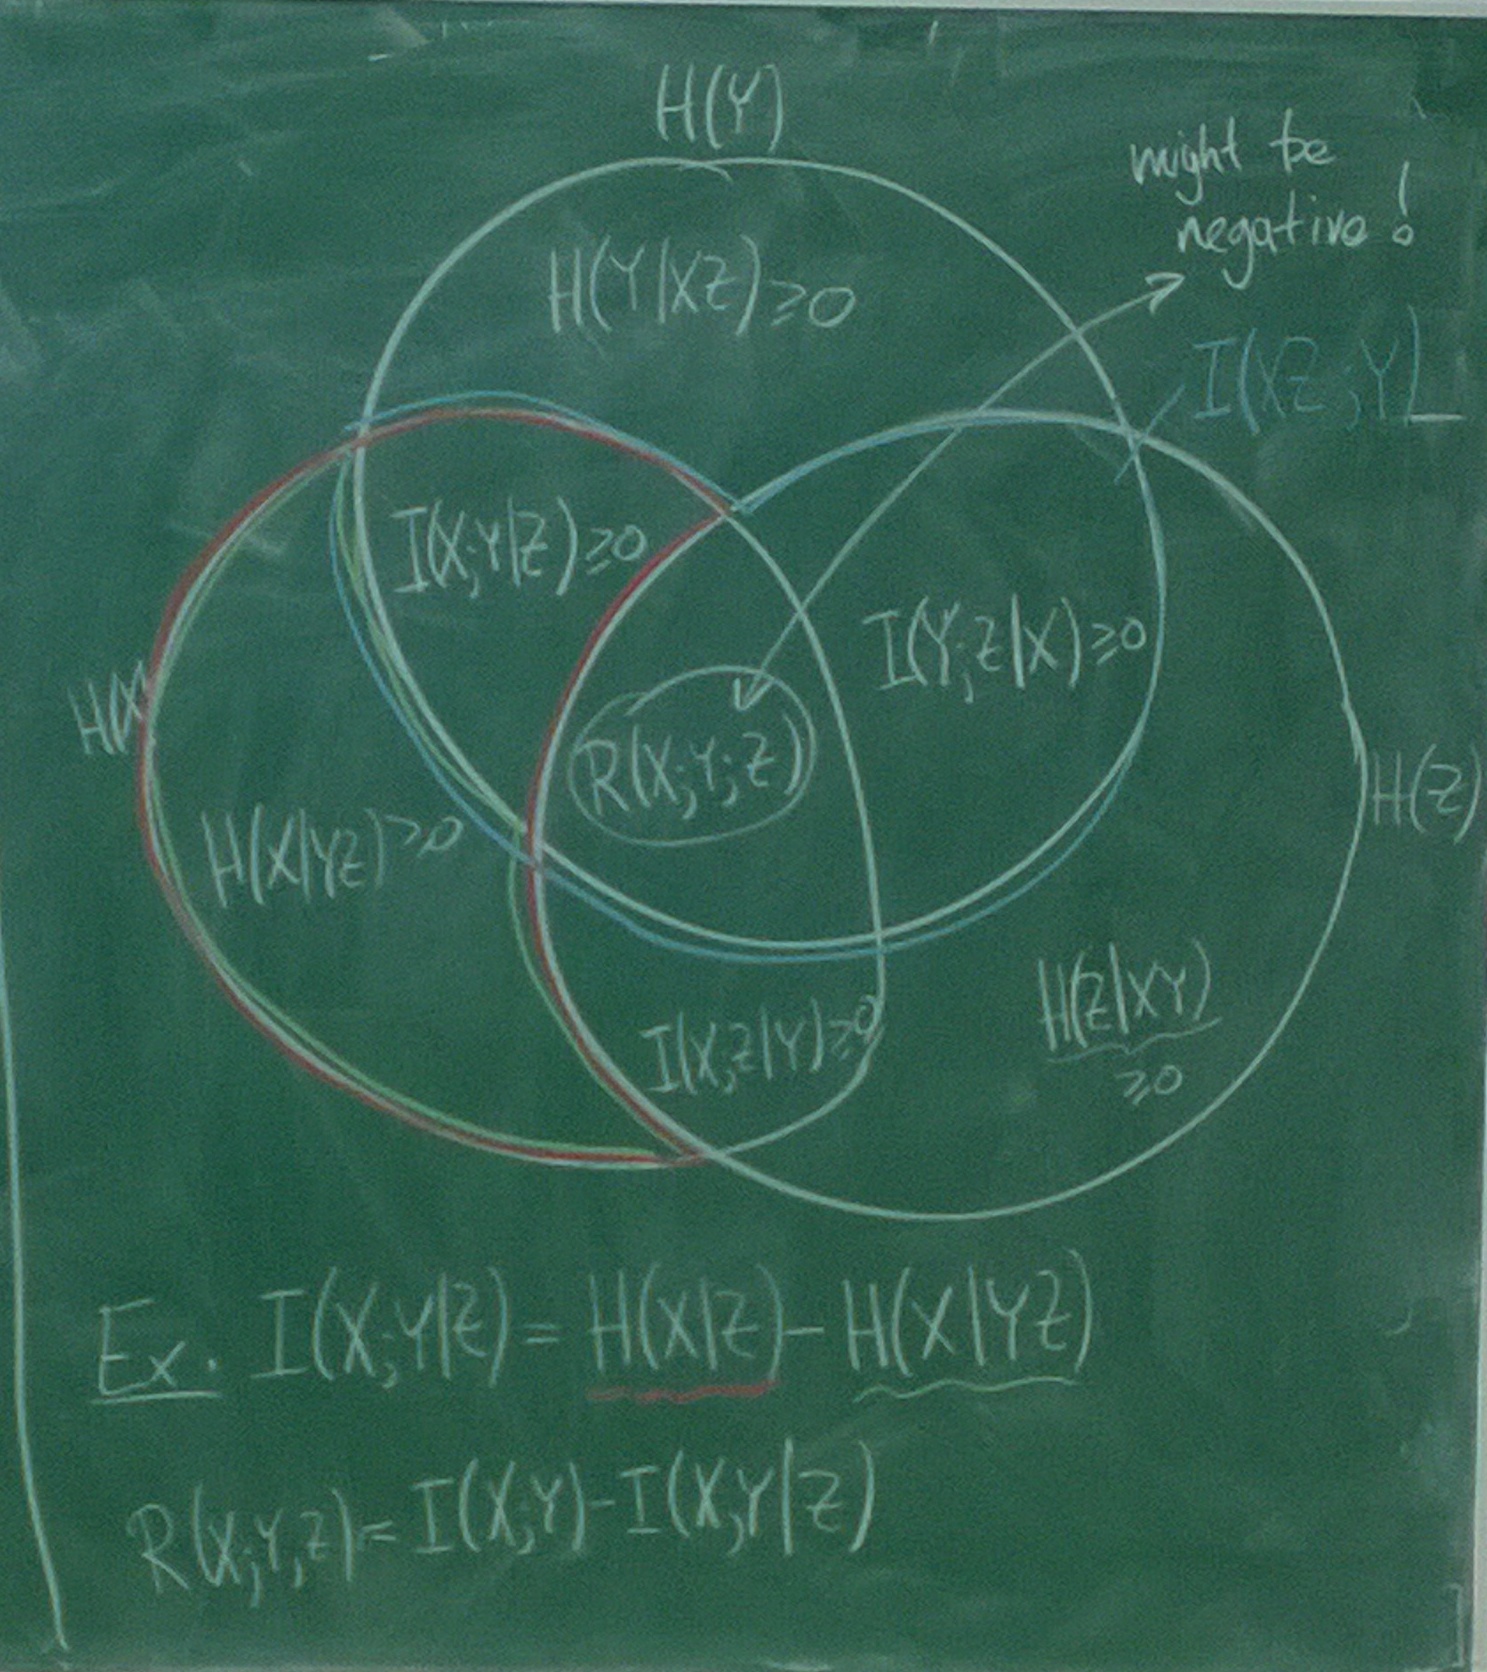 H(Y)
might be
negative!
H(Y|XZ)≥0
I(XZ;Y)
I(X;Y|Z)≥0
I(Y;Z|X)≥0
H(X)
R(X;Y;Z)
H(Z)
H(X|YZ)≥0
H(Z|XY)
≥0
I(X;Z|Y)≥0
Ex. I(X;Y|Z) = H(X|Z) - H(X|YZ)
R(X;Y;Z) = I(X;Y) - I(X;Y|Z)